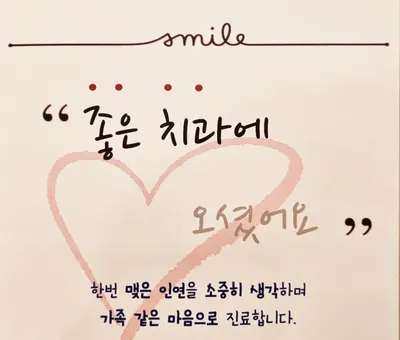 smile
“좋은 치과에
오셨어요”
한번 맺은 인연을 소중히 생각하며
가족 같은 마음으로 진료합니다.